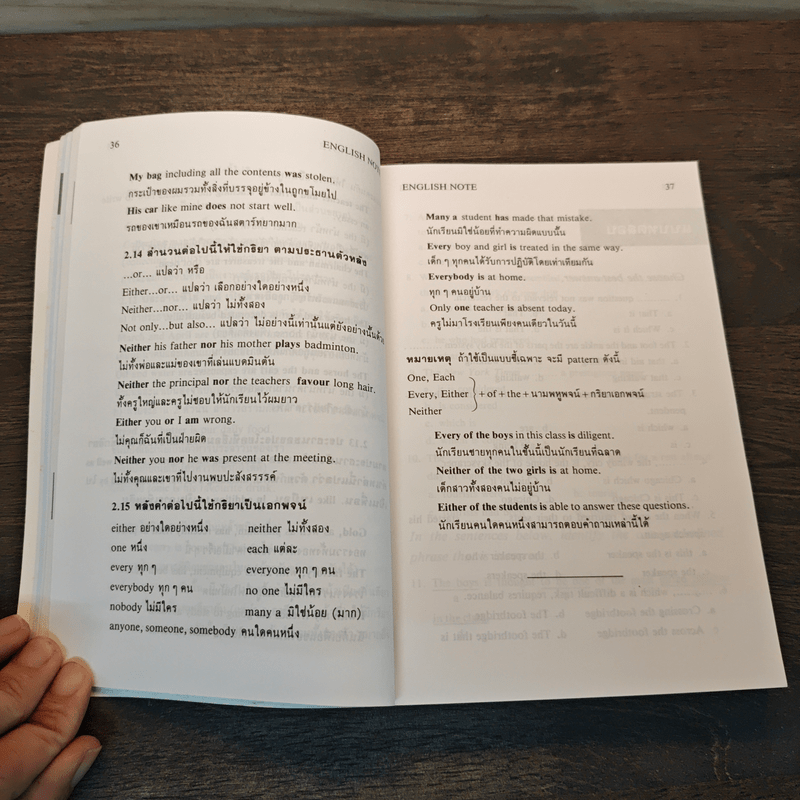 36
ENGLISH NOTE
My bag including all the contents was stolen.
กระเป๋าของผมรวมทั้งสิ่งที่บรรจุอยู่ข้างในถูกขโมยไป
His car like mine does not start well.
รถของเขาเหมือนรถของฉันสตาร์ทยากมาก
2.14 สำนวนต่อไปนี้ให้ใช้กริยา ตามประธานตัวหลัง
...or... แปลว่า หรือ
Either...or... แปลว่า เลือกอย่างใดอย่างหนึ่ง
Neither...nor... แปลว่า ไม่ทั้งสอง
Not only...but also... แปลว่า ไม่อย่างนี้เท่านั้นแต่ยังอย่างนั้นด้วย
Neither his father nor his mother plays badminton.
ไม่ทั้งพ่อและแม่ของเขาที่เล่นแบดมินตัน
Neither the principal nor the teachers favour long hair.
ทั้งครูใหญ่และครูไม่ชอบให้นักเรียนไว้ผมยาว
Either you or I am wrong.
ไม่คุณก็ฉันที่เป็นฝ่ายผิด
Neither you nor he was present at the meeting.
ไม่ทั้งคุณและเขาที่ไปงานพบปะสังสรรรค์
2.15 หลังคำต่อไปนี้ใช้กริยาเป็นเอกพจน์
either อย่างใดอย่างหนึ่ง neither ไม่ทั้งสอง
one หนึ่ง each แต่ละ
every ทุก ๆ everyone ทุก ๆ คน
everybody ทุก ๆ คน no one ไม่มีใคร
nobody ไม่มีใคร many a มิใช่น้อย (มาก)
anyone, someone, somebody คนใดคนหนึ่ง
ENGLISH NOTE
37
Many a student has made that mistake.
นักเรียนมิใช่น้อยที่ทำความผิดแบบนั้น
Every boy and girl is treated in the same way.
เด็ก ๆ ทุกคนได้รับการปฏิบัติโดยเท่าเทียมกัน
Everybody is at home.
ทุก ๆ คนอยู่บ้าน
Only one teacher is absent today.
ครูไม่มาโรงเรียนเพียงคนเดียวในวันนี้
หมายเหตุ ถ้าใช้เป็นแบบชี้เฉพาะ จะมี pattern ดังนี้
One, Each
Every, Either +of+the+นามพหูพจน์+กริยาเอกพจน์
Neither
Every of the boys in this class is diligent.
นักเรียนชายทุกคนในชั้นนี้เป็นนักเรียนที่ฉลาด
Neither of the two girls is at home.
เด็กสาวทั้งสองคนไม่อยู่บ้าน
Either of the students is able to answer these questions.
นักเรียนคนใดคนหนึ่งสามารถตอบคำถามเหล่านี้ได้